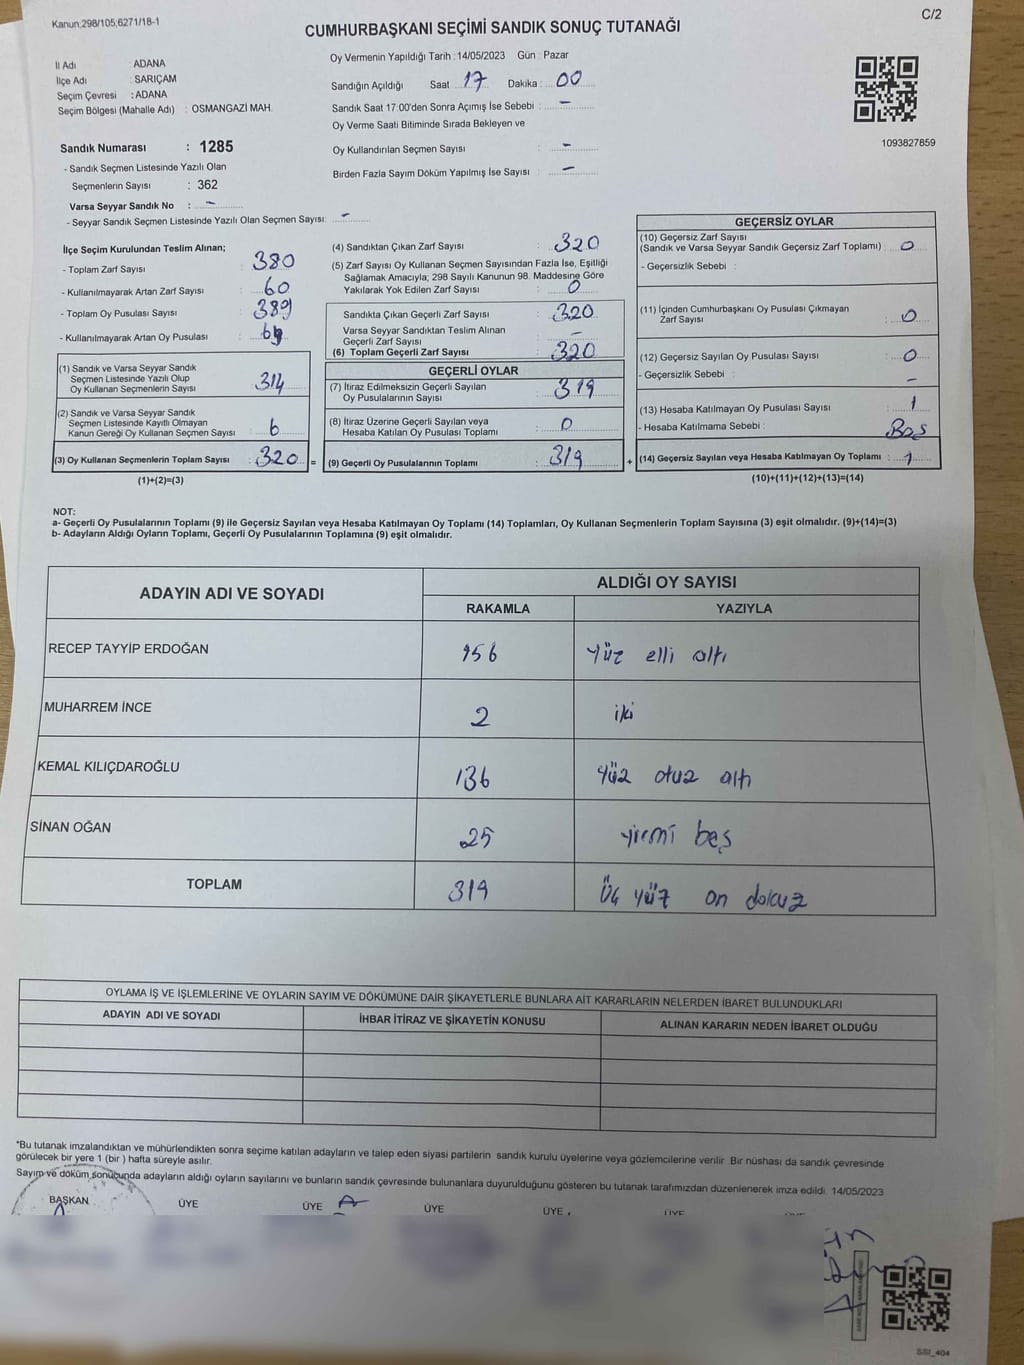 Kanun;298/105;6271/18-1
C/2
CUMHURBAŞKANI SEÇİMİ SANDIK SONUÇ TUTANAĞI
İl Adı ADANA
İlçe Adı SARIÇAM
Seçim Çevresi : ADANA
Seçim Bölgesi (Mahalle Adı) : OSMANGAZİ MAH.
Oy Vermenin Yapıldığı Tarih : 14/05/2023 Gün : Pazar
Sandığın Açıldığı Saat 17 Dakika : 00
Sandık Saat 17:00'den Sonra Açımış İse Sebebi : -
Oy Verme Saati Bitiminde Sırada Bekleyen ve
Oy Kullandırılan Seçmen Sayısı : -
Birden Fazla Sayım Döküm Yapılmış İse Sayısı : -
1093827859
Sandık Numarası : 1285
- Sandık Seçmen Listesinde Yazılı Olan
Seçmenlerin Sayısı : 362
Varsa Seyyar Sandık No : -
- Seyyar Sandık Seçmen Listesinde Yazılı Olan Seçmen Sayısı: -
İlçe Seçim Kurulundan Teslim Alınan;
- Toplam Zarf Sayısı : 380
- Kullanılmayarak Artan Zarf Sayısı : 60
- Toplam Oy Pusulası Sayısı : 389
- Kullanılmayarak Artan Oy Pusulası :
(1) Sandık ve Varsa Seyyar Sandık
Seçmen Listesinde Yazılı Olup
Oy Kullanan Seçmenlerin Sayısı : 314
(2) Sandık ve Varsa Seyyar Sandık
Seçmen Listesinde Kayıtlı Olmayan
Kanun Gereği Oy Kullanan Seçmen Sayısı : 6
(3) Oy Kullanan Seçmenlerin Toplam Sayısı : 320 =
(1)+(2)=(3)
(4) Sandıktan Çıkan Zarf Sayısı : 320
(5) Zarf Sayısı Oy Kullanan Seçmen Sayısından Fazla İse, Eşitliği
Sağlamak Amacıyla; 298 Sayılı Kanunun 98. Maddesine Göre
Yakılarak Yok Edilen Zarf Sayısı : 0
Sandıkta Çıkan Geçerli Zarf Sayısı : 320
Varsa Seyyar Sandıktan Teslim Alınan
Geçerli Zarf Sayısı : -
(6) Toplam Geçerli Zarf Sayısı : 320
GEÇERLİ OYLAR
(7) İtiraz Edilmeksizin Geçerli Sayılan
Oy Pusulalarının Sayısı : 319
(8) İtiraz Üzerine Geçerli Sayılan veya
Hesaba Katılan Oy Pusulası Toplamı : 0
(9) Geçerli Oy Pusulalarının Toplamı : 319 +
GEÇERSİZ OYLAR
(10) Geçersiz Zarf Sayısı
(Sandık ve Varsa Seyyar Sandık Geçersiz Zarf Toplamı) : 0
- Geçersizlik Sebebi :
(11) İçinden Cumhurbaşkanı Oy Pusulası Çıkmayan
Zarf Sayısı : 0
(12) Geçersiz Sayılan Oy Pusulası Sayısı : 0
- Geçersizlik Sebebi : -
(13) Hesaba Katılmayan Oy Pusulası Sayısı : 1
- Hesaba Katılmama Sebebi : Boş
(14) Geçersiz Sayılan veya Hesaba Katılmayan Oy Toplamı : 1
(10)+(11)+(12)+(13)=(14)
NOT:
a- Geçerli Oy Pusulalarının Toplamı (9) ile Geçersiz Sayılan veya Hesaba Katılmayan Oy Toplamı (14) Toplamları, Oy Kullanan Seçmenlerin Toplam Sayısına (3) eşit olmalıdır. (9)+(14)=(3)
b- Adayların Aldığı Oyların Toplamı, Geçerli Oy Pusulalarının Toplamına (9) eşit olmalıdır.
ADAYIN ADI VE SOYADI ALDIĞI OY SAYISI
RAKAMLA YAZIYLA
RECEP TAYYİP ERDOĞAN 156 yüz elli altı
MUHARREM İNCE 2 iki
KEMAL KILIÇDAROĞLU 136 yüz otuz altı
SİNAN OĞAN 25 yirmi beş
TOPLAM 319 Üç yüz on dokuz
OYLAMA İŞ VE İŞLEMLERİNE VE OYLARIN SAYIM VE DÖKÜMÜNE DAİR ŞİKAYETLERLE BUNLARA AİT KARARLARIN NELERDEN İBARET BULUNDUKLARI
ADAYIN ADI VE SOYADI İHBAR İTİRAZ VE ŞİKAYETİN KONUSU ALINAN KARARIN NEDEN İBARET OLDUĞU
*Bu tutanak imzalandıktan ve mühürlendikten sonra seçime katılan adayların ve talep eden siyasi partilerin sandık kurulu üyelerine veya gözlemcilerine verilir. Bir nüshası da sandık çevresinde
görülecek bir yere 1 (bir) hafta süreyle asılır.
Sayım ve döküm sonucunda adayların aldığı oyların sayılarını ve bunların sandık çevresinde bulunanlara duyurulduğunu gösteren bu tutanak tarafımızdan düzenlenerek imza edildi. 14/05/2023
BAŞKAN ÜYE ÜYE ÜYE ÜYE ÜYE
SSI_404